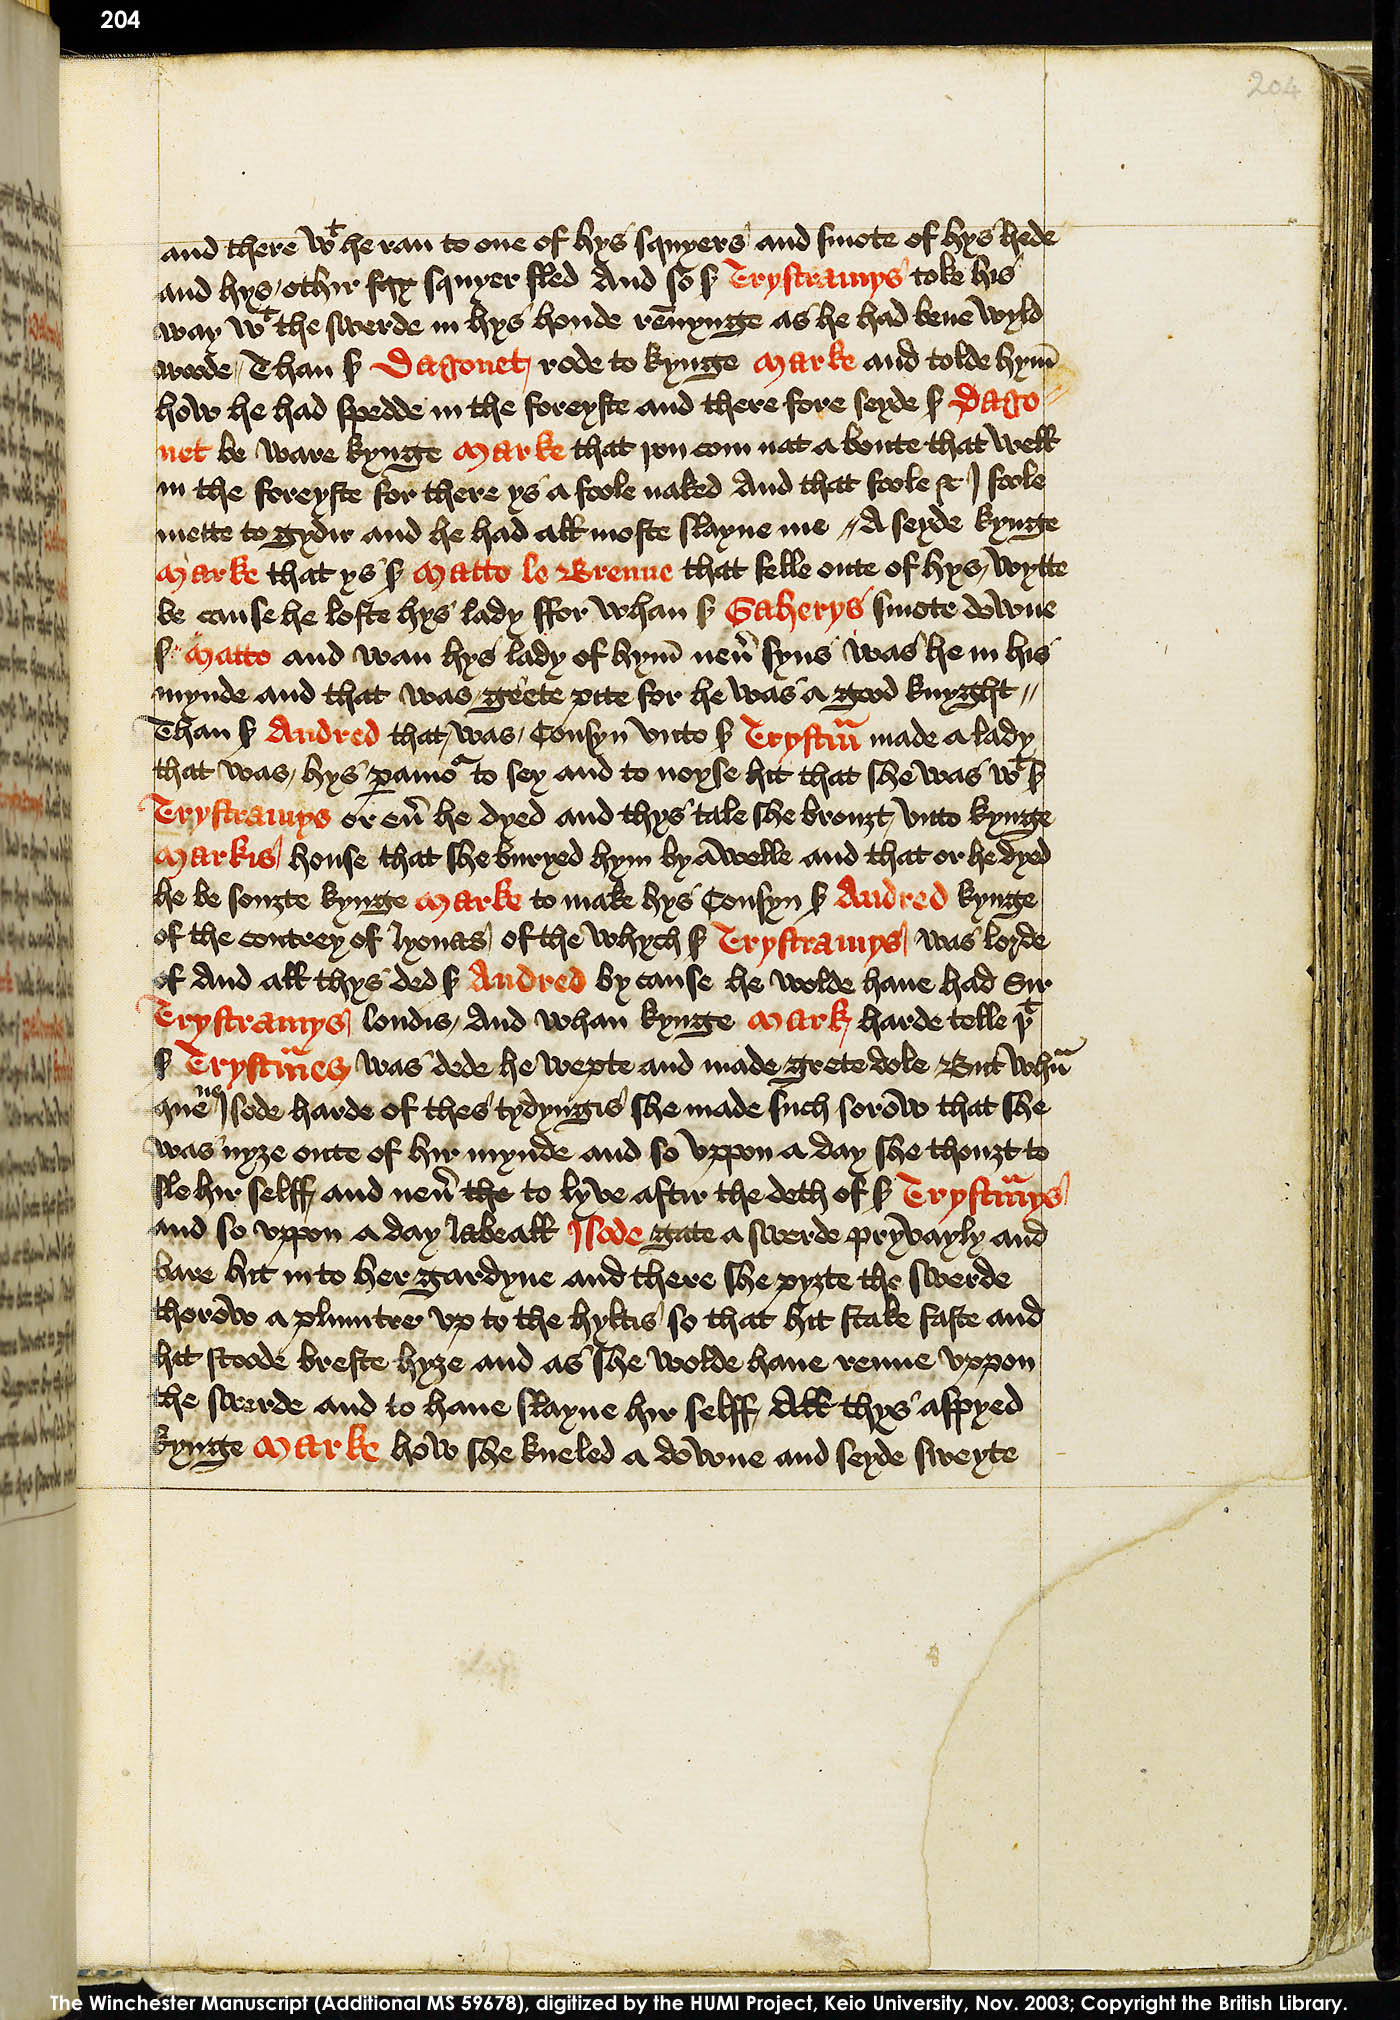 204
204
and there wᵗ he ran to one of hys squyers and smote of hys hede
and hys othir squyer fled And so ẜ Trystramys toke his
way wᵗ the swerde in hys honde rēnynge as he had bene wyld
woode Than ẜ Dagonet rode to kynge Marke and tolde hym̄
how he had spedde in the foreyste and there fore seyde ẜ Dago
net be ware kynge Marke that you com nat a boute that well
in the foreyste for there ys a foole naked And that foole & I foole
mette to gydir and he had all moste slayne me // A seyde kynge
Marke that ys ẜ Matto le Brenne that felle oute of hys wytte
be cause he loste hys lady ffor whan ẜ Gaherys smote downe
ẜ Matto and wan hys lady of hym̄ neũ syns was he in his
mynde and that was grete pite for he was a good knyght //
Than ẜ Andred that was Cousyn vnto ẜ Trystrᵃm made a lady
that was hys ꝑamoʳ to sey and to noyse hit that she was wᵗ ẜ
Trystramys or eũ he dyed and thys tale she brouȝt vnto kynge
Markis house that she buryed hym by a welle and that or he dyed
he be souȝte kynge Marke to make hys Cousyn ẜ Andred kynge
of the contrey of lyonas of the whych ẜ Trystramys was lorde
of And all thys ded ẜ Andred by cause he wolde haue had Sir
Trystramys londis And whan kynge Mark harde telle þᵗ
ẜ Trystrᵃmes was dede he wepte and made grete dole But whᵃn
queⁿᵉ Isode harde of thes tydyngis she made such sorow that she
was nyȝe oute of hir mynde and so vppon a day she thouȝt to
sle hir selff and neũ the to lyve aftir the deth of ẜ Trystrᵃmys
and so vppon a day labeall Isode gate a swerde pryvayly and
bare hit into her gardyne and there she pyȝte the swerde
thorow a plumtre vp to the hyltis so that hit stake faste and
hit stoode breste hyȝe and as she wolde haue renne vppon
the swerde and to haue slayne hir selff All thys aspyed
kynge Marke how she kneled a downe and seyde sweyte
The Winchester Manuscript (Additional MS 59678), digitized by the HUMI Project, Keio University, Nov. 2003; Copyright the British Library.